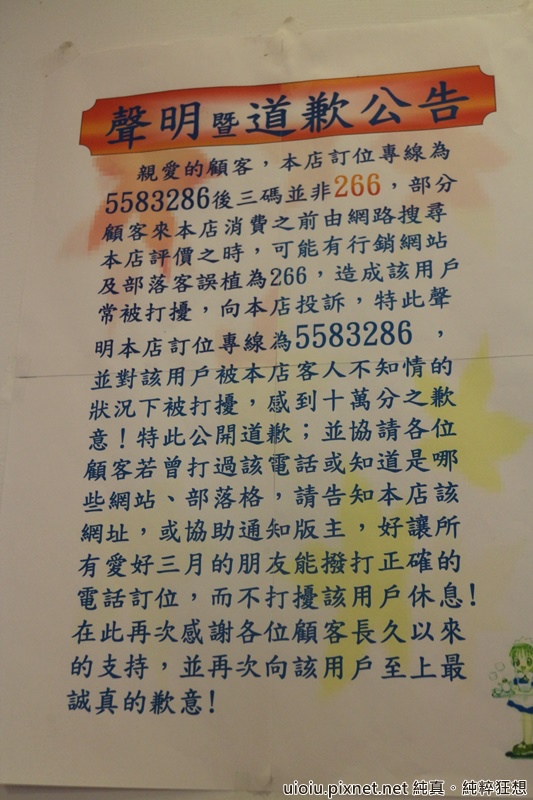 聲明暨道歉公告
親愛的顧客，本店訂位專線為
5583286後三碼並非266，部分
顧客來本店消費之前由網路搜尋
本店評價之時，可能有行銷網站
及部落客誤植為266，造成該用戶
常被打擾，向本店投訴，特此聲
明本店訂位專線為5583286，
並對該用戶被本店客人不知情的
狀況下被打擾，感到十萬分之歉
意！特此公開道歉；並協請各位
顧客若曾打過該電話或知道是哪
些網站、部落格，請告知本店該
網址，或協助通知版主，好讓所
有愛好三月的朋友能撥打正確的
電話訂位，而不打擾該用戶休息！
在此再次感謝各位顧客長久以來
的支持，並再次向該用戶至上最
誠真的歉意！
uioiu.pixnet.net 純真。純粹狂想